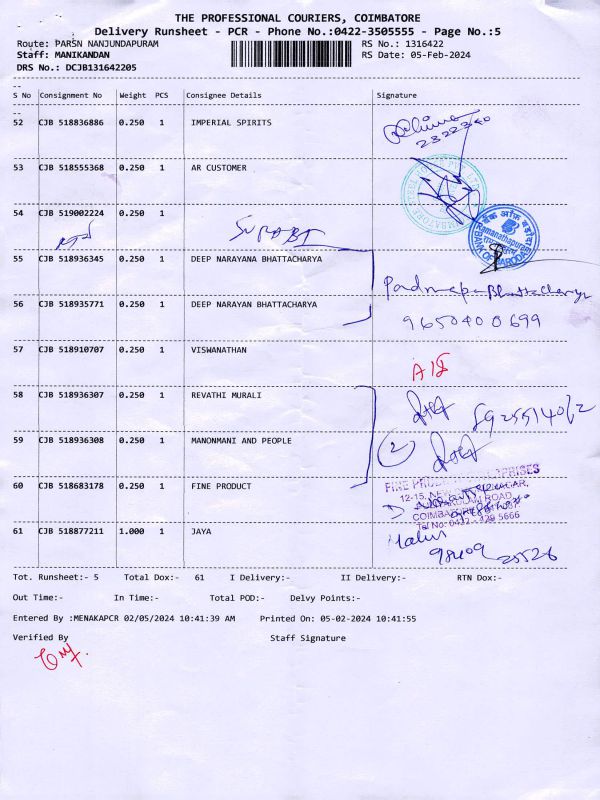 THE PROFESSIONAL COURIERS, COIMBATORE
Delivery Runsheet - PCR - Phone No.:0422-3505555 - Page No.:5
Route: PARSN NANJUNDAPURAM RS No.: 1316422
Staff: MANIKANDAN RS Date: 05-Feb-2024
DRS No.: DCJB131642205
--
S No Consignment No Weight PCS Consignee Details Signature
--
52 CJB 518836886 0.250 1 IMPERIAL SPIRITS
53 CJB 518555368 0.250 1 AR CUSTOMER
54 CJB 519002224 0.250 1
SURABI
Ramanathapuram
BANK OF BARODA
55 CJB 518936345 0.250 1 DEEP NARAYANA BHATTACHARYA
Padmapa Bhattacharya
56 CJB 518935771 0.250 1 DEEP NARAYAN BHATTACHARYA
9650400699
57 CJB 518910707 0.250 1 VISWANATHAN
58 CJB 518936307 0.250 1 REVATHI MURALI
59 CJB 518936308 0.250 1 MANONMANI AND PEOPLE
2
60 CJB 518683178 0.250 1 FINE PRODUCT
COIMBATORE
Tel No: 0422 - 429 5666
61 CJB 518877211 1.000 1 JAYA
Tot. Runsheet:- 5 Total Dox:- 61 I Delivery:- II Delivery:- RTN Dox:-
Out Time:- In Time:- Total POD:- Delvy Points:-
Entered By :MENAKAPCR 02/05/2024 10:41:39 AM Printed On: 05-02-2024 10:41:55
Verified By Staff Signature